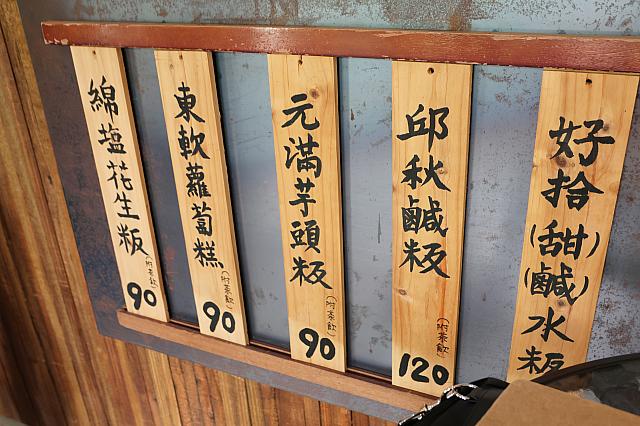 好拾(甜)(鹹)水粄
邱秋鹹粄(附茶飲)120
元滿芋頭粄(附茶飲)90
東軟蘿蔔糕(附茶飲)90
綿塩花生粄(附茶飲)90